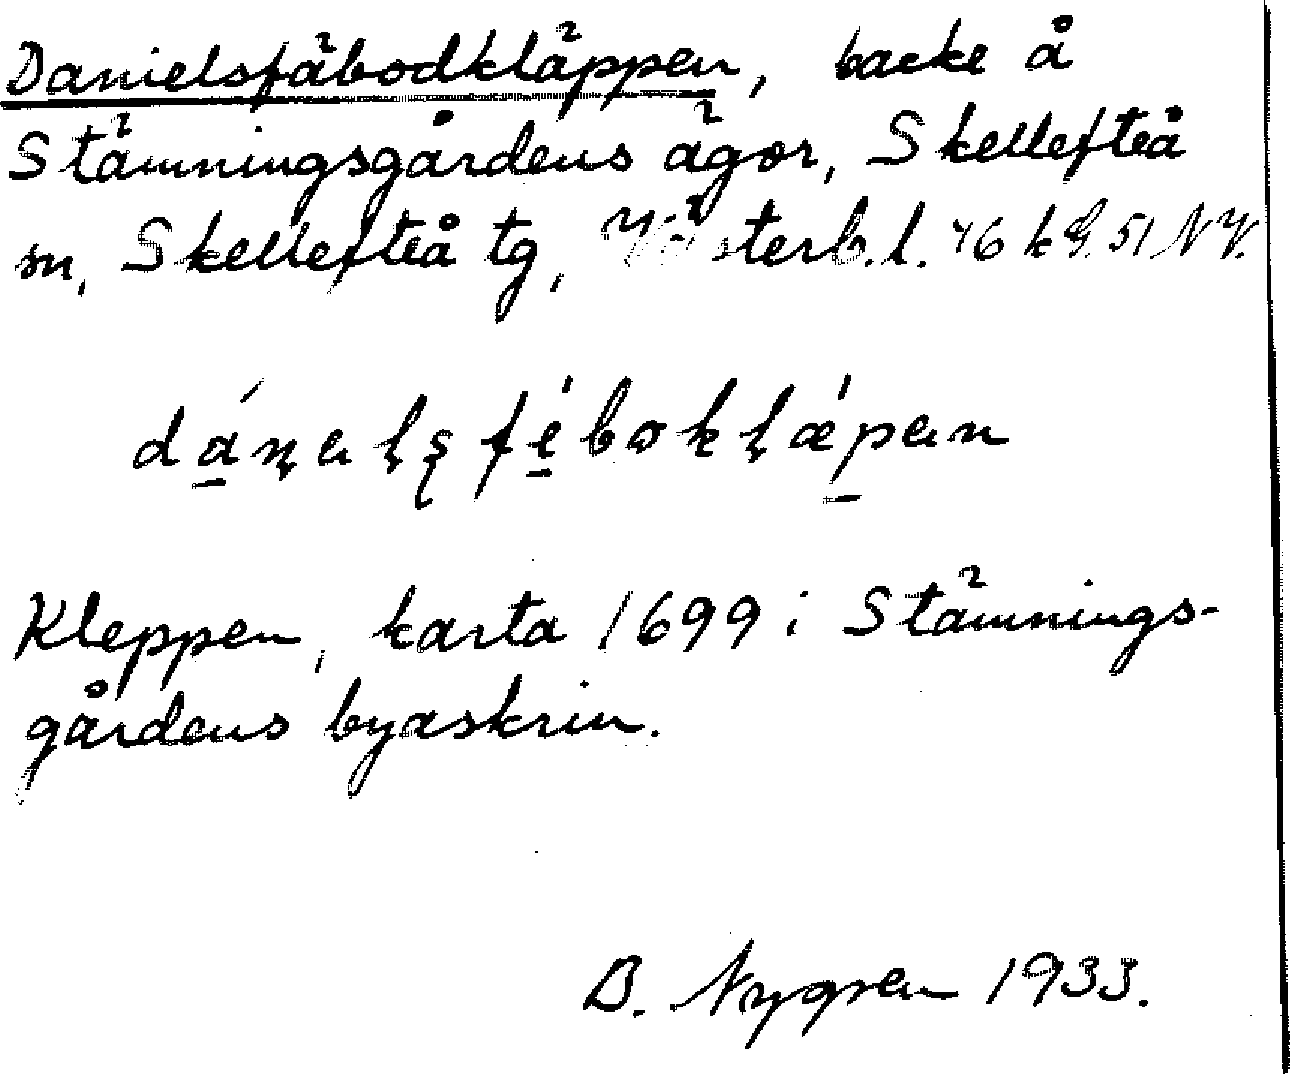 Danielsfäbodkläppen, backe å
Stämningsgårdens ägor, Skellefteå
sn, Skellefteå tg, Västerb.l. 46 k
Kleppen, karta 1699 i Stämnings-
gårdens byaskrin.
B. Nygren 1933.